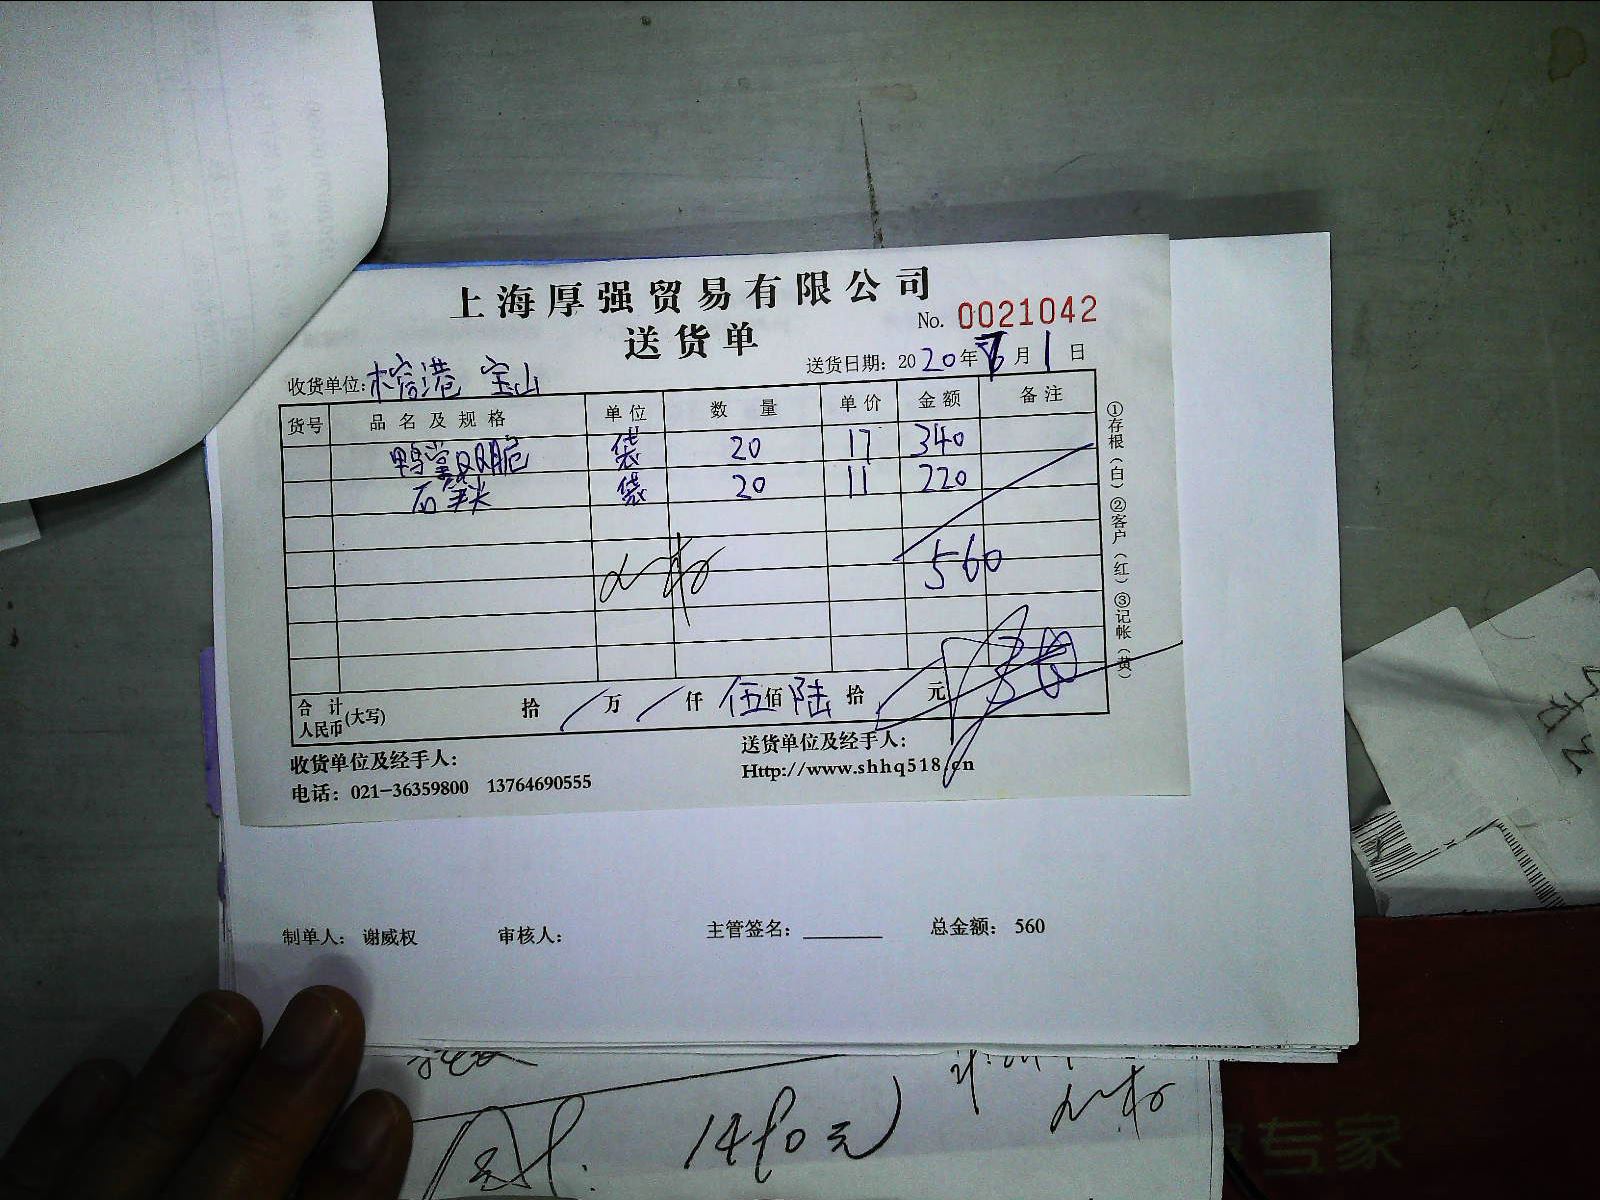 上海厚强贸易有限公司
送货单
No. 0021042
收货单位: 榕港 宝山
送货日期: 2020年6月1日
货号 品名及规格 单位 数量 单价 金额 备注
鸭掌双脆 袋 20 17 340
石笋尖 袋 20 11 220
560
合计人民币(大写) 拾 / 万 / 仟 伍佰 陆拾 元
收货单位及经手人:
送货单位及经手人:
电话: 021-36359800 13764690555
Http://www.shhq518.cn
①存根(白)②客户(红)③记帐(黄)
制单人: 谢威权 审核人: 主管签名: 总金额: 560
元
专家